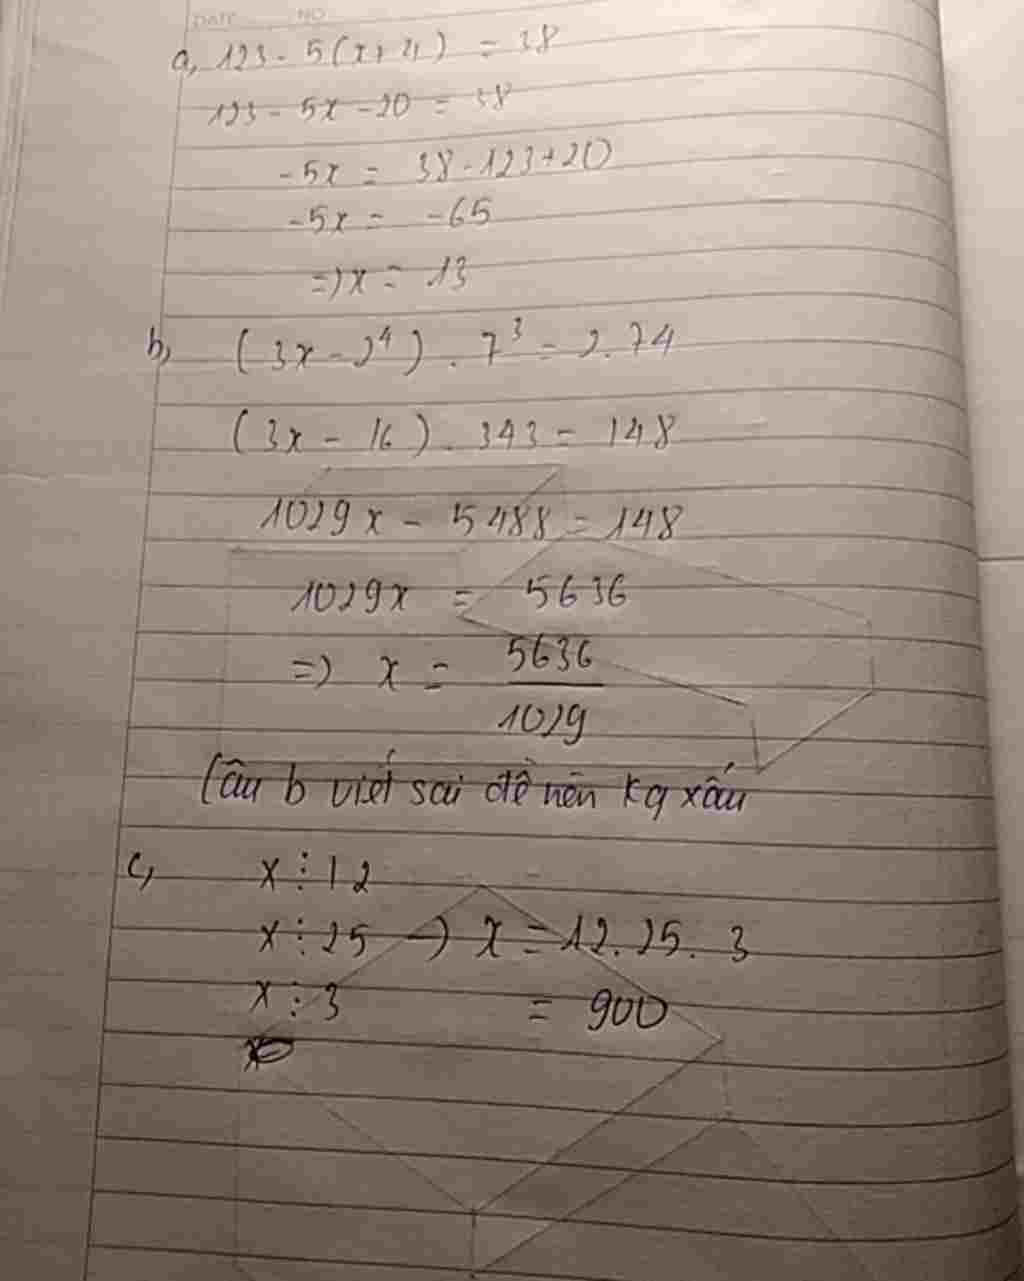 DATE NO
a, 123 - 5(x+4) = 38
123 - 5x - 20 = 38
-5x = 38 - 123 + 20
-5x = -65
=> x = 13
b, (3x - 2⁴) . 7³ = 2.74
(3x - 16) . 343 = 148
1029x - 5488 = 148
1029x = 5636
=> x = 5636/1029
(Câu b viết sai đề nên kq xấu
c, x ⋮ 12
x ⋮ 25 → x = 12.25.3
x ⋮ 3 = 900